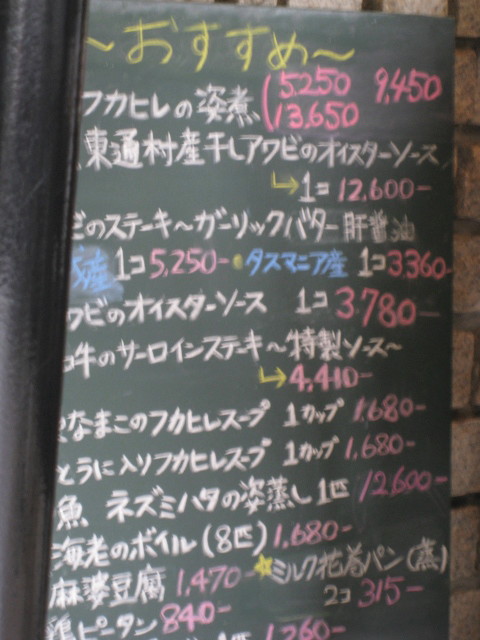 ~おすすめ~
フカヒレの姿煮 (5,250 9,450
13,650
東通村産干しアワビのオイスターソース
↳1コ12,600-
ビのステーキ~ガーリックバター肝醤油
1コ5,250- ・タスマニア産 1コ3360-
ワビのオイスターソース 1コ3,780-
牛のサーロインステキ~特製ソース~
↳4,410-
なまこのフカヒレスープ 1カップ 1,680-
とうに入りフカヒレスープ 1カップ 1,680-
魚 ネズミハタの姿蒸し1匹 12,600-
海老のボイル(8匹)1,680-
麻婆豆腐 1,470- ☆ミルク花巻パン(蒸)
2コ 315-
鶏ピータン 840-
1,260-